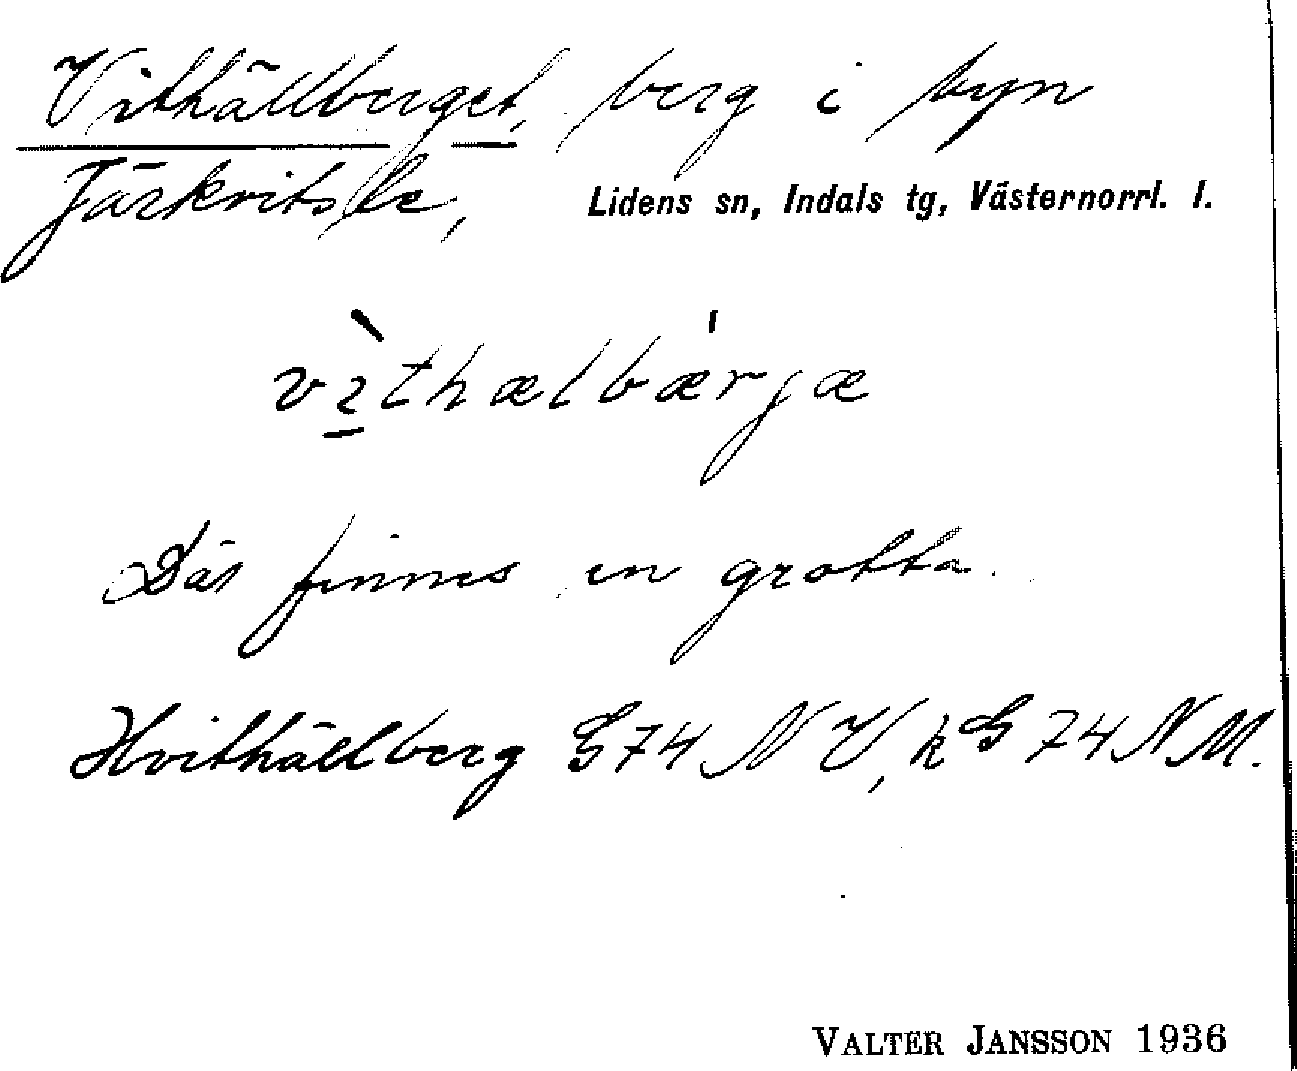 Vithällberget, berg i byn
Järkvitsle, Lidens sn, Indals tg, Västernorrl. l.
vìthælbærjæ
Där finnes en grotta.
Hvithällberg G74 NV, k G 74 NM.
VALTER JANSSON 1936